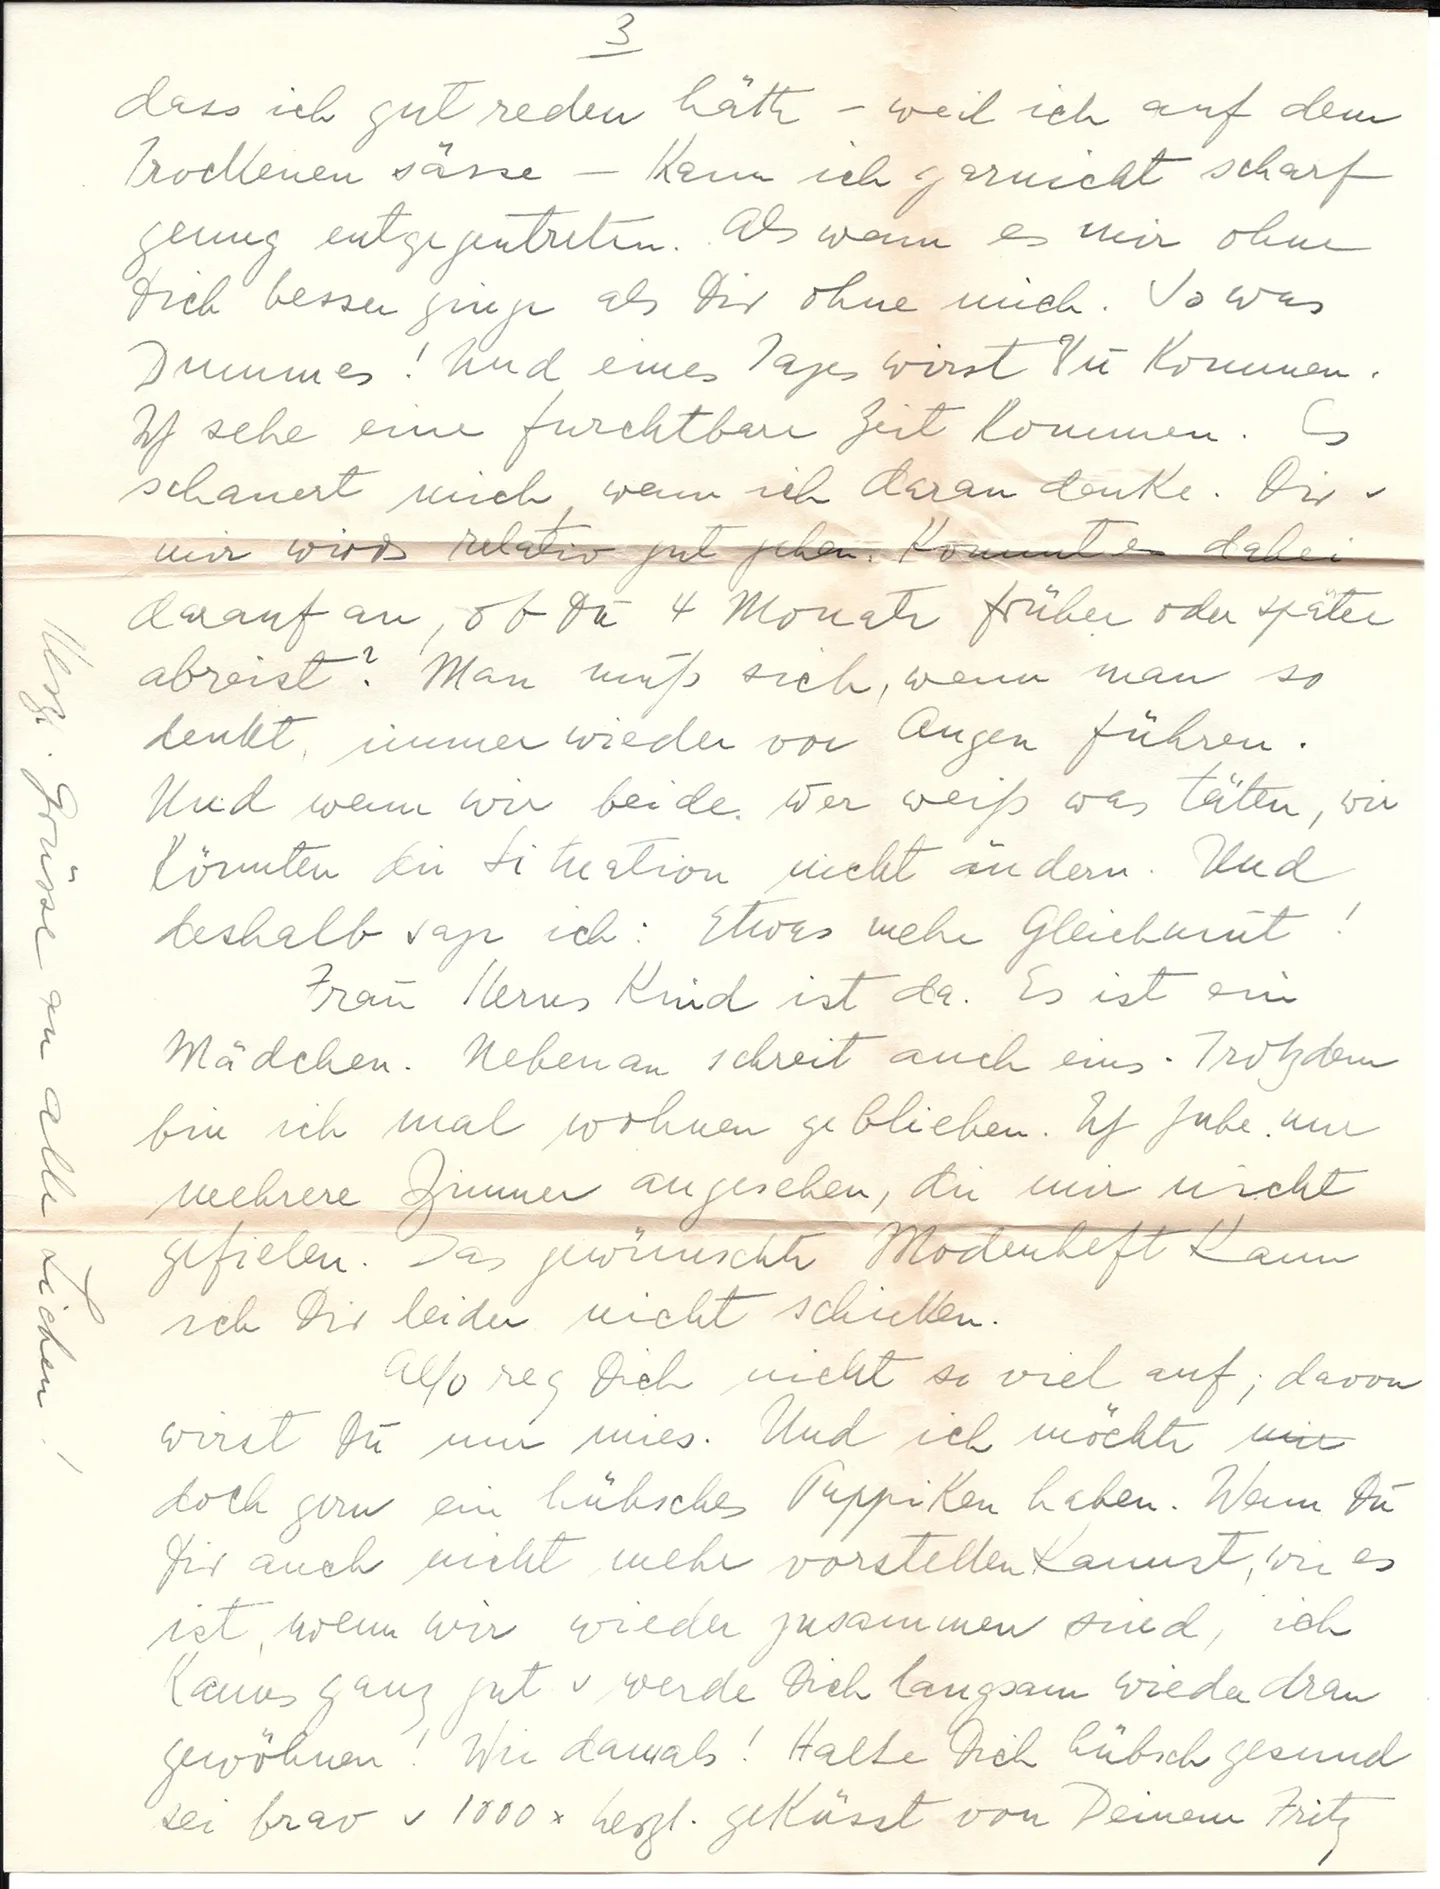 3
dass ich gut reden hätte – weil ich auf dem
Trockenen sässe – kann ich garnicht scharf
genug entgegentreten. Als wenn es mir ohne
Dich besser ginge als Dir ohne mich. So was
Dummes! Und eines Tages wirst Du kommen.
Ich sehe eine furchtbare Zeit kommen. Es
schauert mich, wenn ich daran denke. Dir u
mir wirds relativ gut gehen. Kommt es dabei
darauf an, ob Du 4 Monate früher oder später
abreist? Man muß sich, wenn man so
denkt, immer wieder vor Augen führen.
Und wenn wir beide wer weiß was täten, wir
könnten die Situation nicht ändern. Und
deshalb sage ich: Etwas mehr Gleichmut!
Frau Kerns Kind ist da. Es ist ein
Mädchen. Nebenan schreit auch eins. Trotzdem
bin ich mal wohnen geblieben. Ich habe nur
mehrere Zimmer angesehen, die mir nicht
gefielen. Das gewünschte Modenheft kann
ich Dir leider nicht schicken.
Also reg Dich nicht so viel auf; davon
wirst Du nur mies. Und ich möchte mir
doch gern ein hübsches Puppiken haben. Wenn Du
Dir auch nicht mehr vorstellen kannst, wie es
ist, wenn wir wieder zusammen sind, ich
kanns ganz gut u werde Dich langsam wieder dran
gewöhnen! Wie damals! Halte Dich hübsch gesund
sei brav u 1000 x herzl. geküsst von Deinem Fritz
Herzl. Grüsse an alle Lieben!